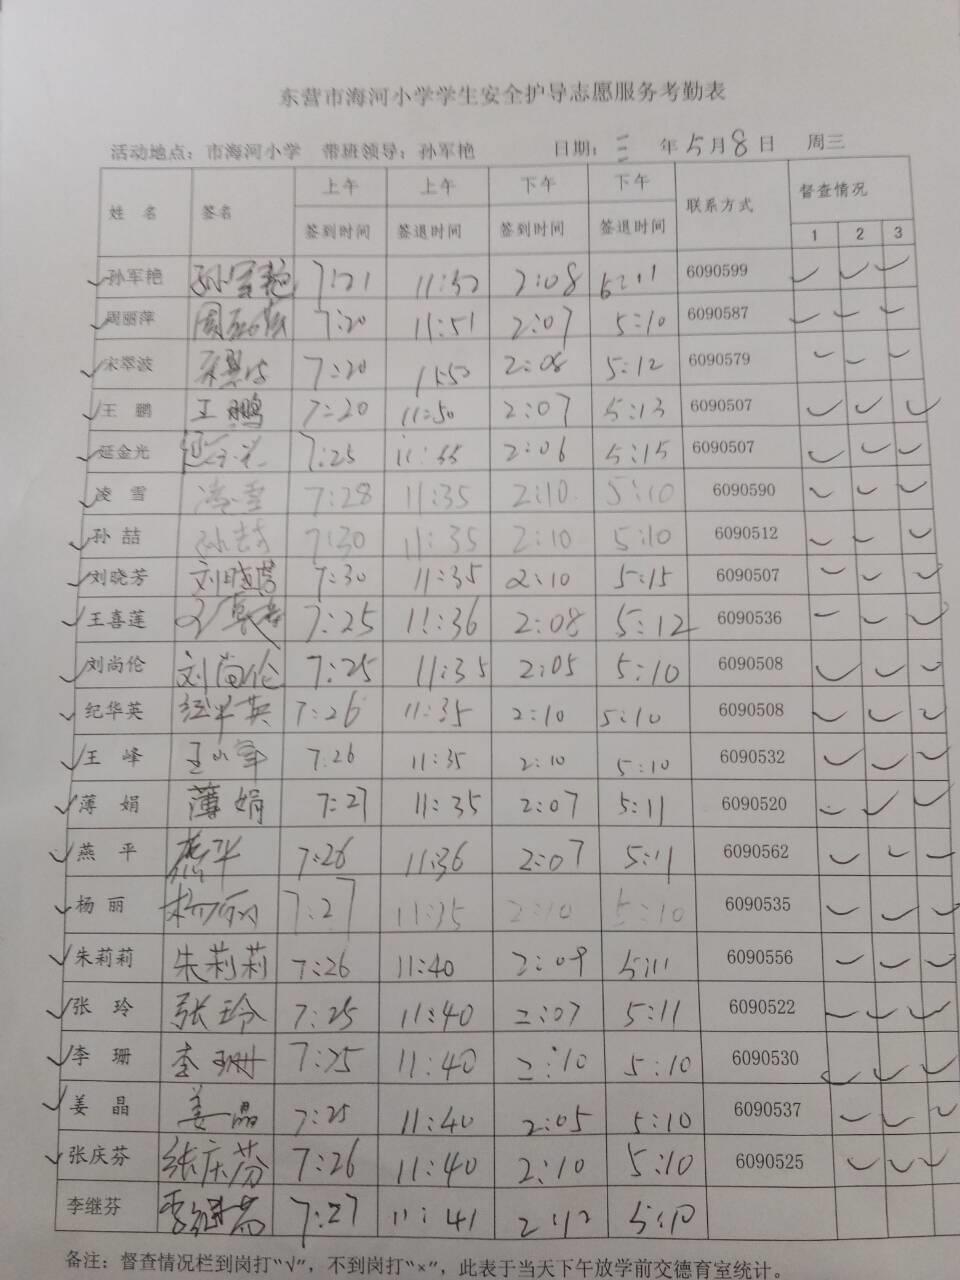 东营市海河小学学生安全护导志愿服务考勤表
活动地点：市海河小学 带班领导：孙军艳 日期：三 年 5月8日 周三
姓 名 签名 上午 上午 下午 下午 联系方式 督查情况
签到时间 签退时间 签到时间 签退时间 1 2 3
√孙军艳 孙军艳 7:21 11:52 2:08 5:11 6090599 √ √ √
√周丽萍 周丽萍 7:20 11:51 2:07 5:10 6090587 √ √ √
√宋翠波 宋翠波 7:20 11:50 2:08 5:12 6090579 √ √ √
√王 鹏 王鹏 7:20 11:50 2:07 5:13 6090507 √ √ √
√延金光 延金光 7:25 11:55 2:06 5:15 6090507 √ √ √
√凌 雪 凌雪 7:28 11:35 2:10 5:10 6090590 √ √ √
√孙 喆 孙喆 7:30 11:35 2:10 5:10 6090512 √ √ √
√刘晓芳 刘晓芳 7:30 11:35 2:10 5:15 6090507 √ √ √
√王喜莲 7:25 11:36 2:08 5:12 6090536 √ √ √
√刘尚伦 刘尚伦 7:25 11:35 2:05 5:10 6090508 √ √ √
√纪华英 纪华英 7:26 11:35 2:10 5:10 6090508 √ √ √
√王 峰 王峰 7:26 11:35 2:10 5:10 6090532 √ √ √
√薄 娟 薄娟 7:27 11:35 2:07 5:11 6090520 √ √ √
√燕 平 燕平 7:26 11:36 2:07 5:11 6090562 √ √ √
√杨 丽 杨丽 7:27 11:35 2:10 5:10 6090535 √ √ √
√朱莉莉 朱莉莉 7:26 11:40 2:09 5:11 6090556 √ √ √
√张 玲 张玲 7:25 11:40 2:07 5:11 6090522 √ √ √
√李 珊 李珊 7:25 11:40 2:10 5:10 6090530 √ √ √
√姜 晶 姜晶 7:25 11:40 2:05 5:10 6090537 √ √ √
√张庆芬 张庆芬 7:26 11:40 2:10 5:10 6090525 √ √ √
李继芬 李继芬 7:27 11:41 2:12 5:10
备注：督查情况栏到岗打“√”，不到岗打“×”，此表于当天下午放学前交德育室统计。